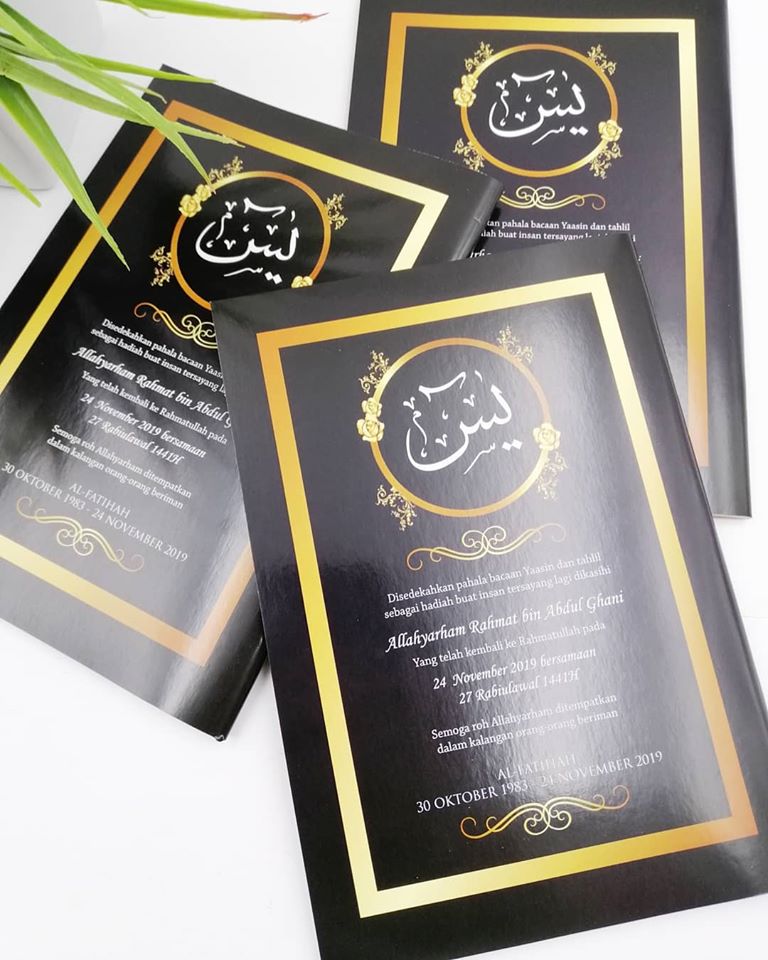 يس
kan pahala bacaan Yaasin dan tahlil
insan tersayang
يس
Disedekahkan pahala bacaan
sebagai hadiah buat insan tersayang
Allahyarham Rahmat bin Abdul
Yang telah kembali ke Rahmatullah pada
24 November 2019 bersamaan
27 Rabiulawal 1441H
Semoga roh Allahyarham ditempatkan
dalam kalangan orang-orang beriman
AL-FATIHAH
30 OKTOBER 1983 - 24 NOVEMBER 2019
يس
Disedekahkan pahala bacaan Yaasin dan tahlil
sebagai hadiah buat insan tersayang lagi dikasihi
Allahyarham Rahmat bin Abdul Ghani
Yang telah kembali ke Rahmatullah pada
24 November 2019 bersamaan
27 Rabiulawal 1441H
Semoga roh Allahyarham ditempatkan
dalam kalangan orang-orang beriman
AL-FATIHAH
30 OKTOBER 1983 - 24 NOVEMBER 2019